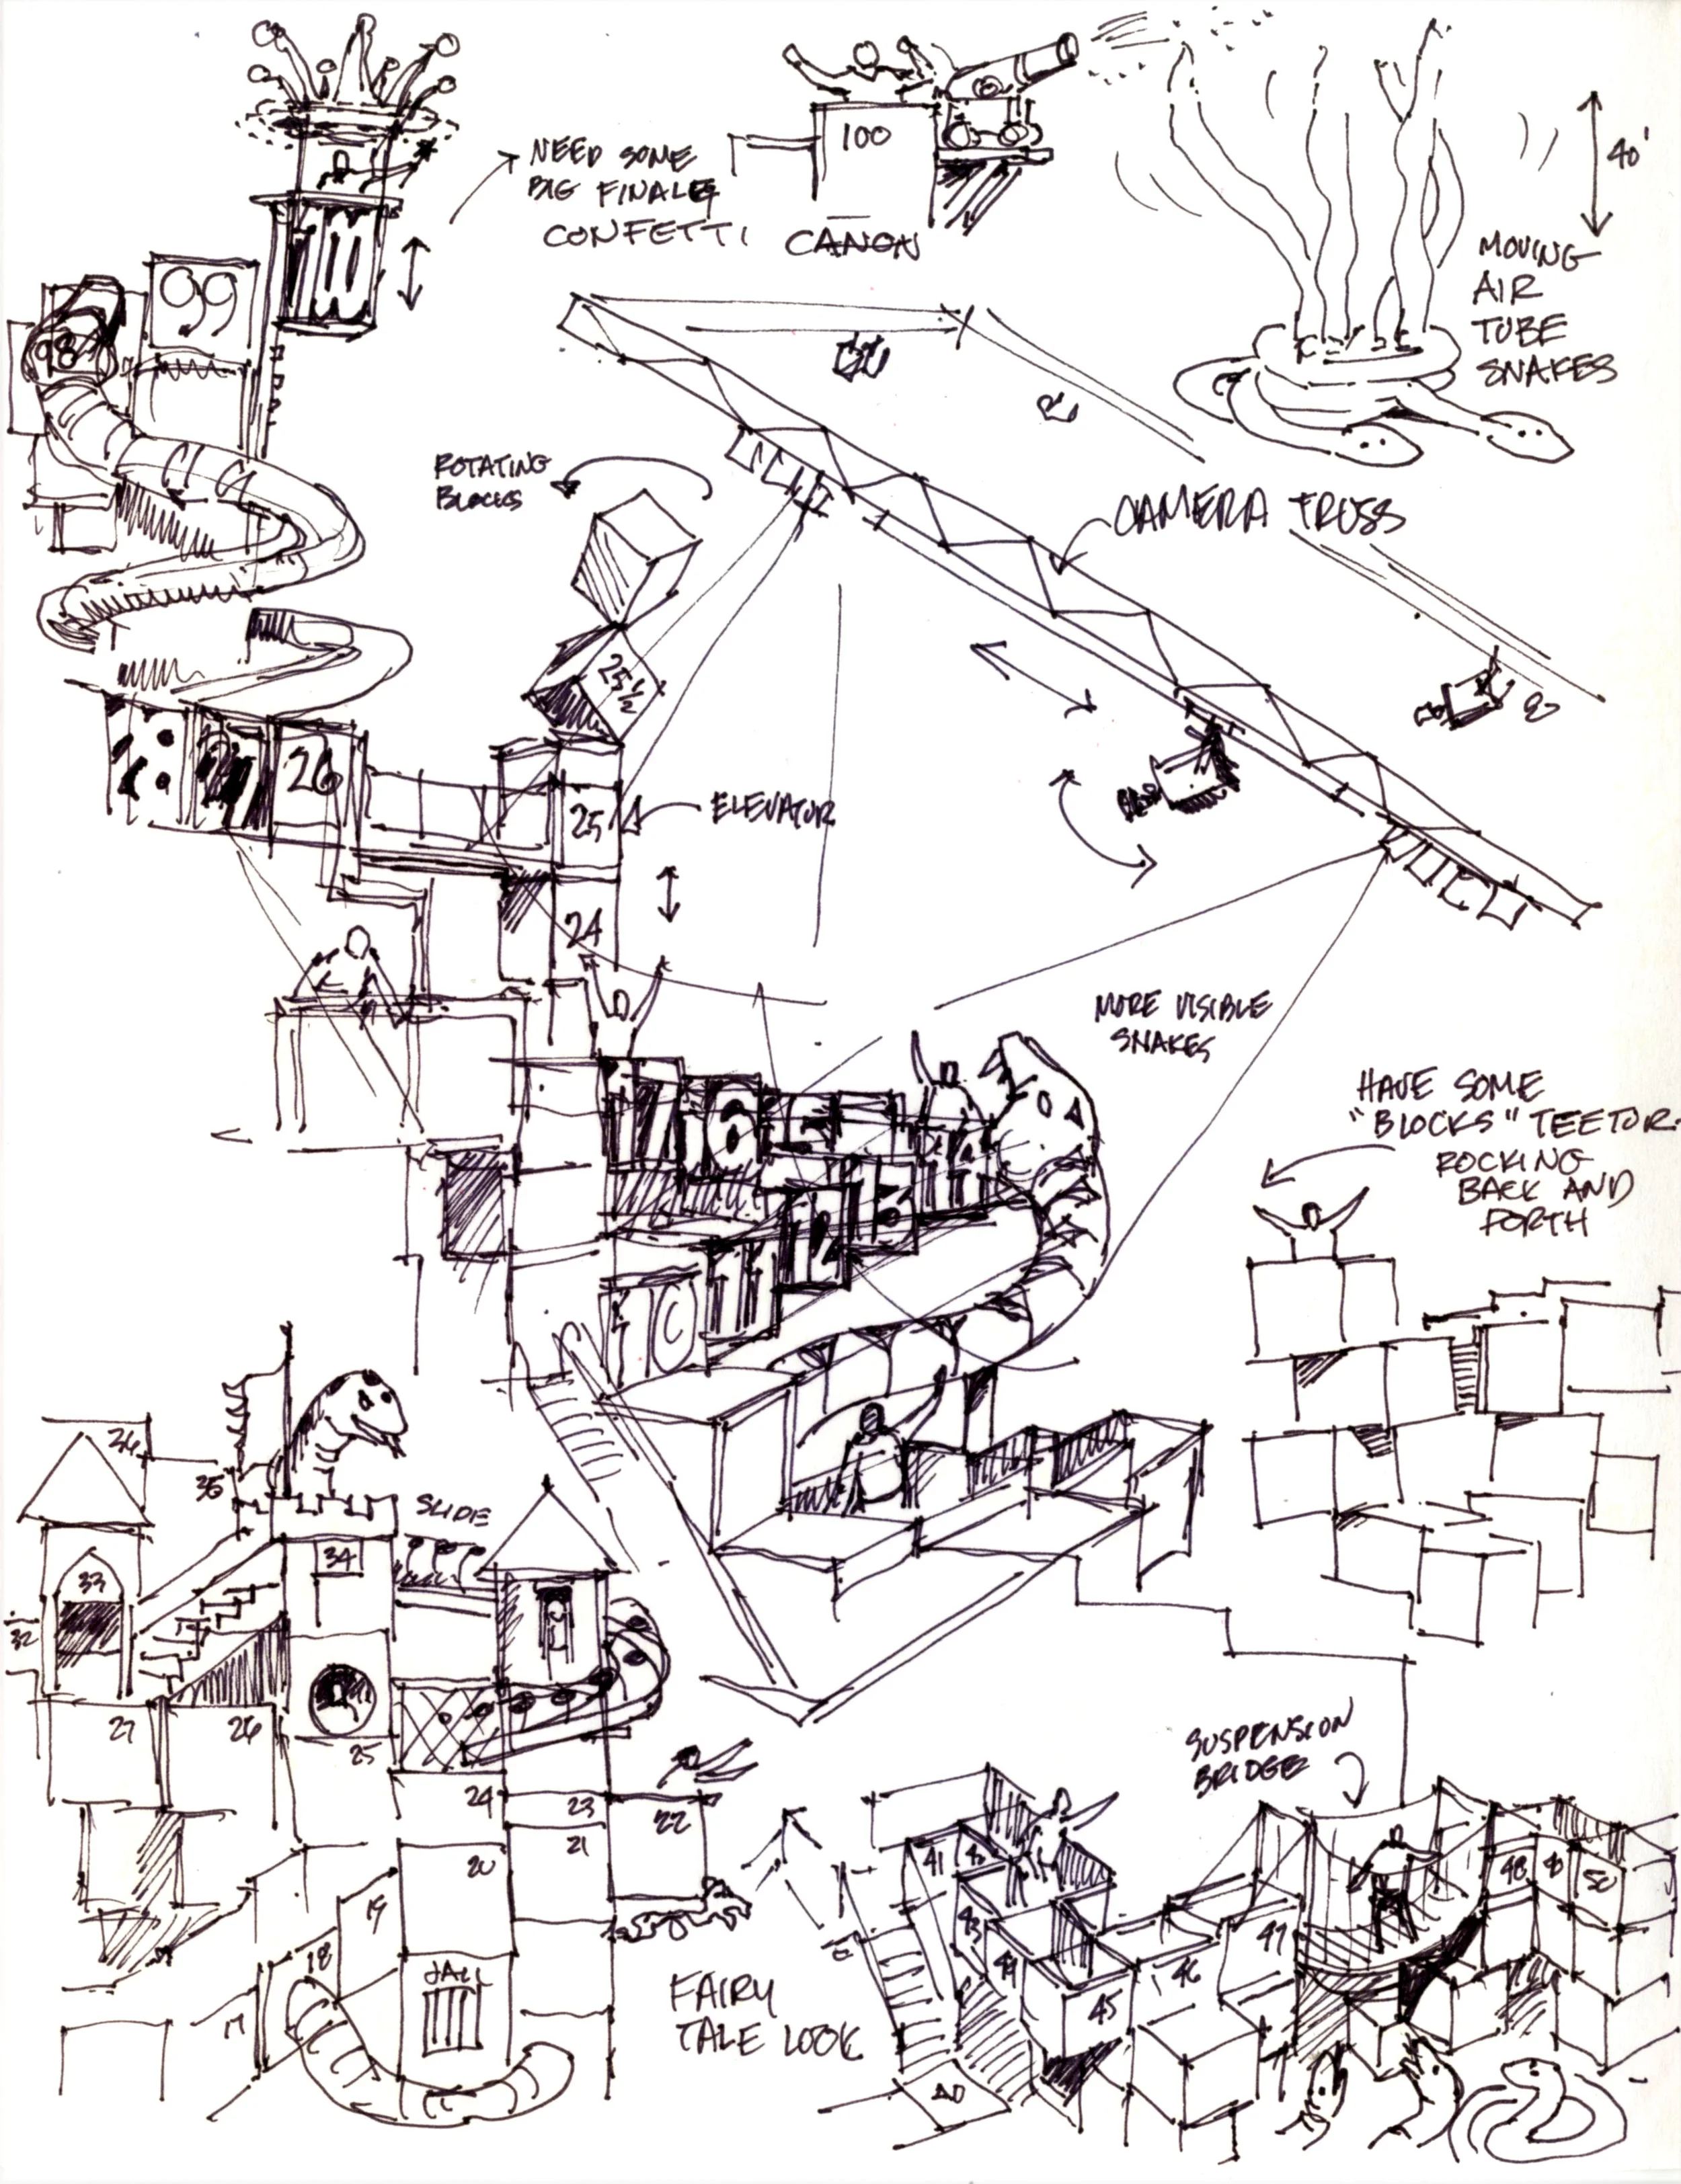 NEED SOME
BIG FINALE
CONFETTI CANON
100
40'
MOVING
AIR
TUBE
SNAKES
99
98
ROTATING
BLOCKS
CAMERA TRUSS
25½
26
25
ELEVATOR
24
MORE VISIBLE
SNAKES
HAVE SOME
"BLOCKS" TEETOR
ROCKING
BACK AND
FORTH
17
16
15
14
13
12
11
10
36
35
SLIDE
34
33
32
27
26
25
24
23
22
21
20
19
18
17
JAIL
FAIRY
TALE LOOK
SUSPENSION
BRIDGE
41
42
43
44
45
46
47
48
49
50
40